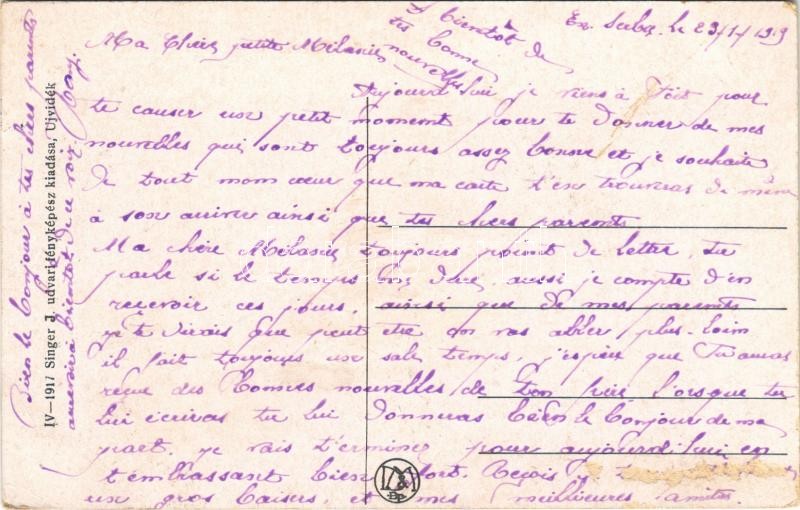 En Serbie, le 23/1/1919
Ma Chère petite Mélanie
A bientôt de
tes bonne
nouvelles
Aujourd'hui je viens à toit pour
te causer un petit moment pour te donner de mes
nouvelles qui sont toujours assez bonne et je souhaite
de tout mom cœur que ma carte t'en trouveras de même
à son arrivée ainsi que tes chers parents
Ma chère Mélanie toujours point de letter, tu
parle si le temps me dure, aussi je compte d'en
recevoir ces jours, ainsi que de mes parents
je te dirais que peut etre on vas aller plus loin
il fait toujours un sale temps, j'espère que tu auras
reçue des bonnes nouvelles de ton frère lorsque tu
lui écriras tu lui donneras bien le bonjour de ma
part. je vais terminer pour aujourd'hui en
t'embrassant bien fort. Reçois
un gros baisers, et mes meilleures amitiés
Bien le bonjour à tes chers parents
au revoir à bientôt de te voir
IV—1917 Singer J. udvari fényképész kiadása, Ujvidék
D&M
Bp.